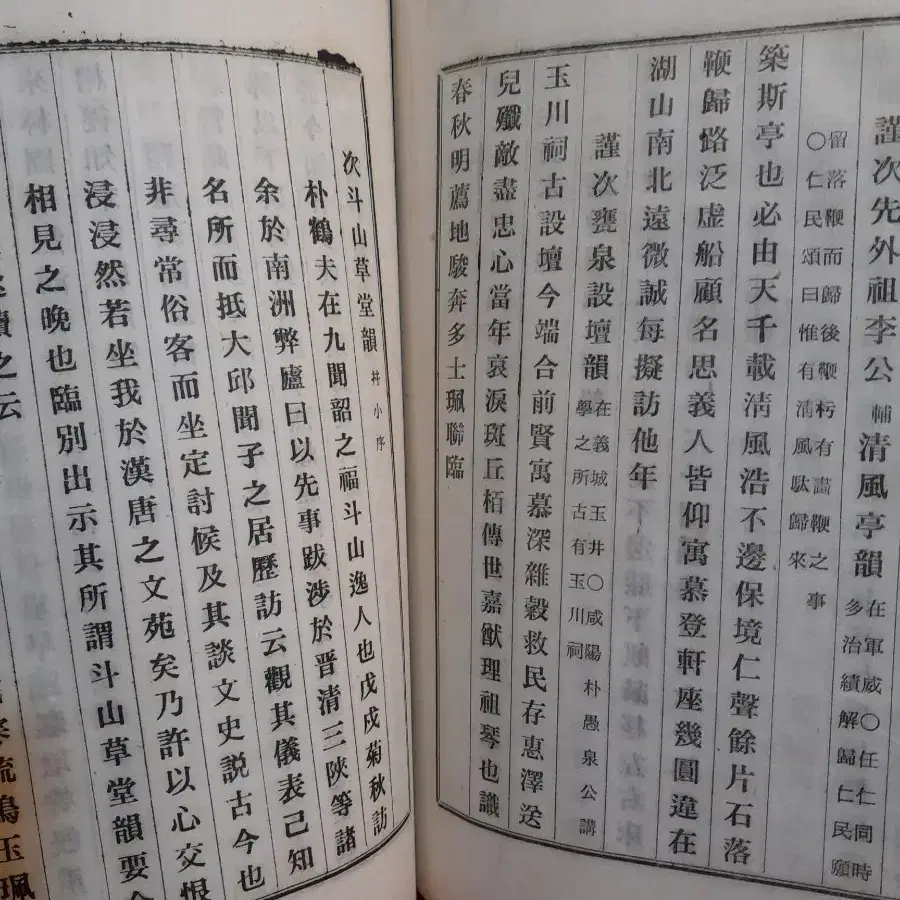 謹次先外祖李公輔清風亭韻
在軍威〇任仁同時
多治績解歸仁民願
留落鞭而歸後鞭杇有畵鞭之事
〇仁民頌曰惟有清風馱歸來
築斯亭也必由天千載清風浩不邊保境仁聲餘片石落
鞭歸路泛虛船顧名思義人皆仰寓慕登軒座幾圓違在
湖山南北遠微誠每擬訪他年
謹次甕泉設壇韻
在義城玉井〇咸陽朴愚泉公講
學之所古有玉川祠
玉川祠古設壇今端合前賢寓慕深雜穀救民存惠澤送
兒殲敵盡忠心當年哀淚斑丘栢傳世嘉猷理祖琴也識
春秋明薦地駿奔多士珮聯臨
次斗山草堂韻幷小序
朴鶴夫在九聞韶之福斗山逸人也戊戍菊秋訪
余於南洲弊廬曰以先事跋涉於晋清三陜等諸
名所而抵大邱聞子之居歷訪云觀其儀表已知
非尋常俗客而坐定討候及其談文史説古今也
浸浸然若坐我於漢唐之文苑矣乃許以心交恨
相見之晚也臨別出示其所謂斗山草堂韻要
續之云
鳴玉珮